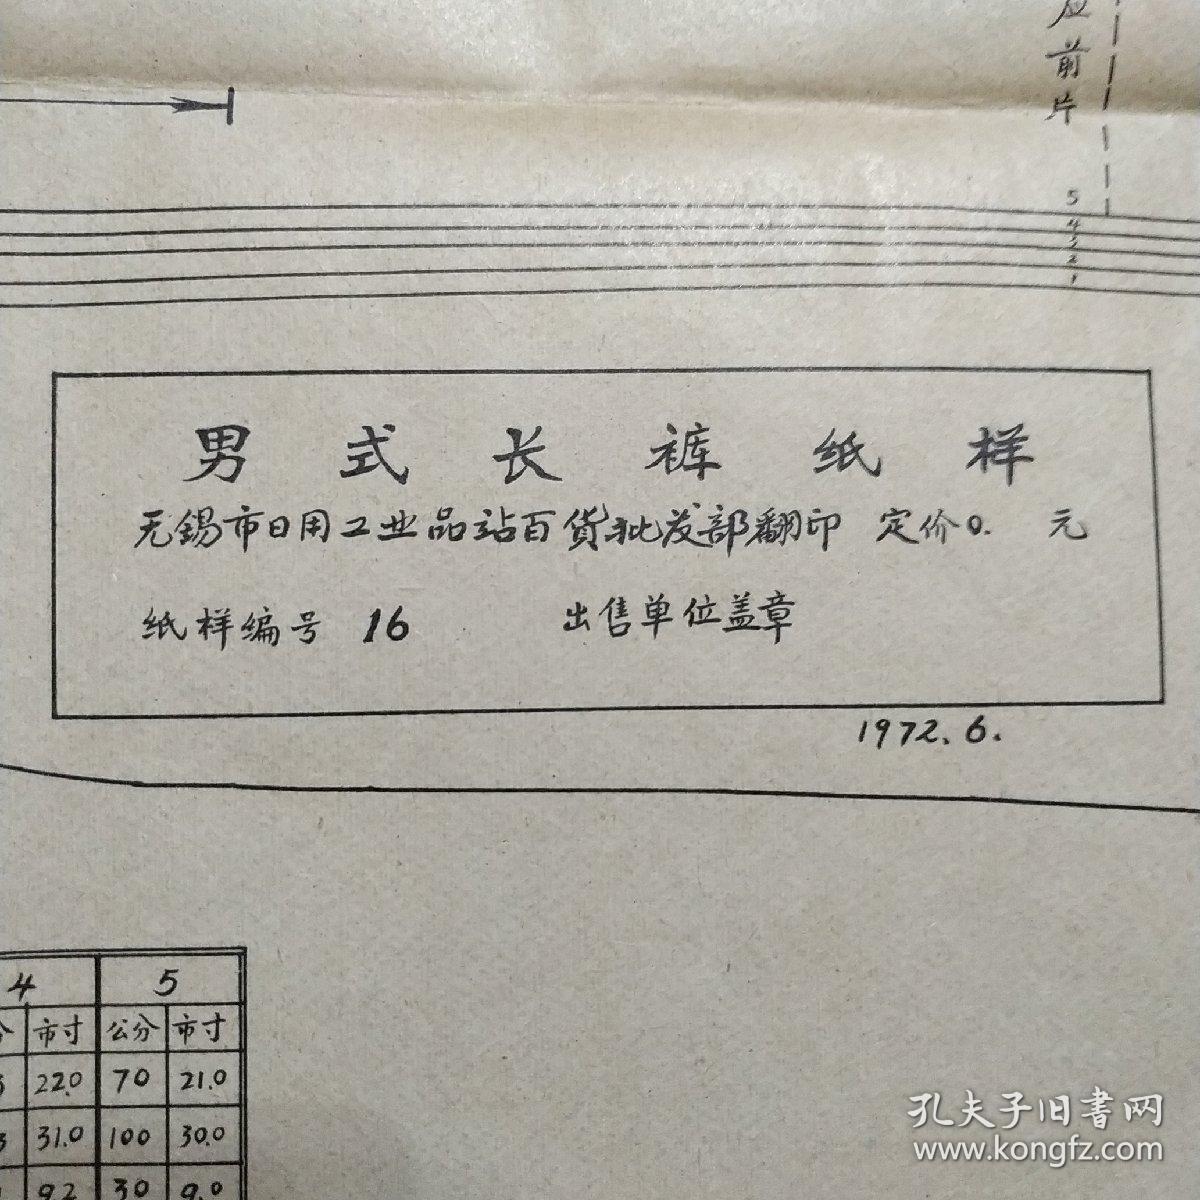 应前片
5
4
3
2
1
男式长裤纸样
无锡市日用工业品站百货批发部翻印 定价0. 元
纸样编号 16 出售单位盖章
1972.6.
4 5
市寸 公分 市寸
22.0 70 21.0
31.0 100 30.0
9.2 30 9.0
孔夫子旧書网
www.kongfz.com